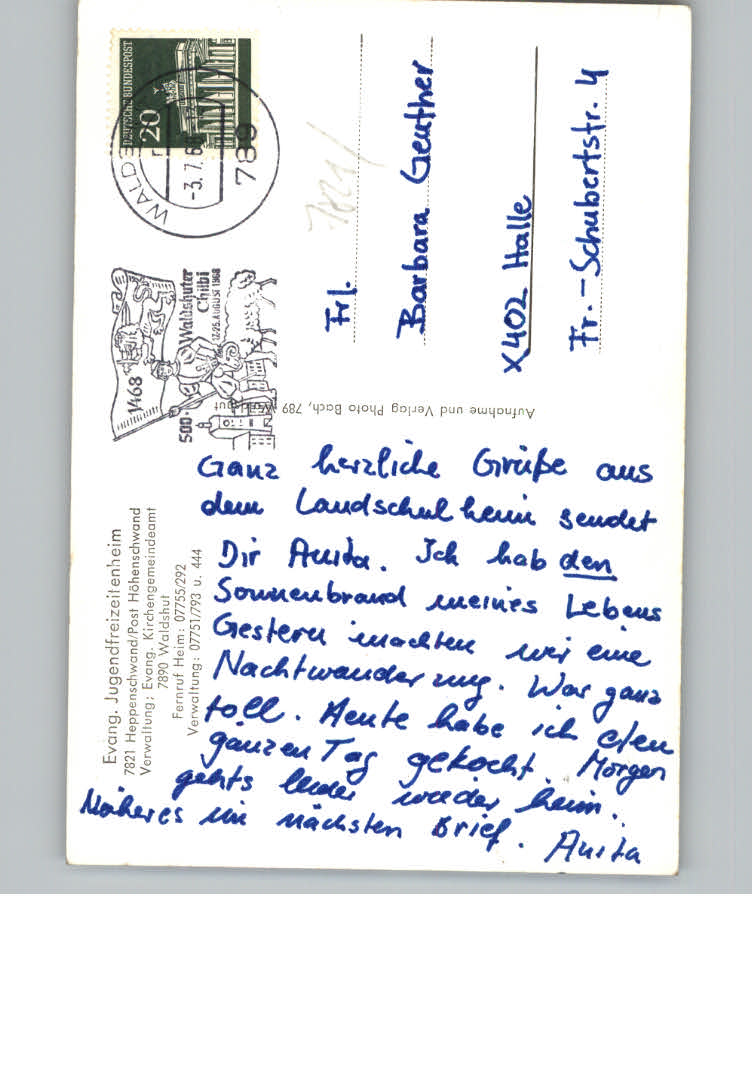 Evang. Jugendfreizeitenheim
7821 Heppenschwand/Post Höhenschwand
Verwaltung: Evang. Kirchengemeindeamt
7890 Waldshut
Fernruf Heim: 07755/292
Verwaltung: 07751/793 u. 444
Ganz herzliche Grüße aus
dem Landschulheim sendet
Dir Anita. Ich hab den
Sonnenbrand meines Lebens
Gestern machten wir eine
Nachtwanderung. War ganz
toll. Heute habe ich den
ganzen Tag gekocht. Morgen
gehts leider wieder heim.
Näheres im nächsten Brief.
Anita
Aufnahme und Verlag Photo Bach, 789 Waldshut
1468
500
Waldshuter
Chilbi
17-25. AUGUST 1968
DEUTSCHE BUNDESPOST
20
-3.7.68
789
7821
Frl.
Barbara Geuther
X402 Halle
Fr.-Schubertstr. 4